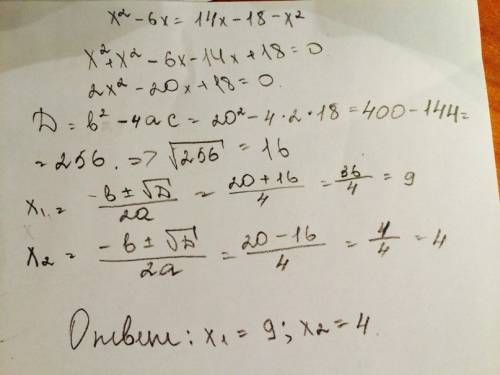 x² - 6x = 14x - 18 - x²
x² + x² - 6x - 14x + 18 = 0
2x² - 20x + 18 = 0.
D = b² - 4ac = 20² - 4 · 2 · 18 = 400 - 144 =
= 256. => √256 = 16
x₁ = (-b ± √D)/2a = (20 + 16)/4 = 36/4 = 9
x₂ = (-b ± √D)/2a = (20 - 16)/4 = 4/4 = 4
Ответ: x₁ = 9; x₂ = 4.